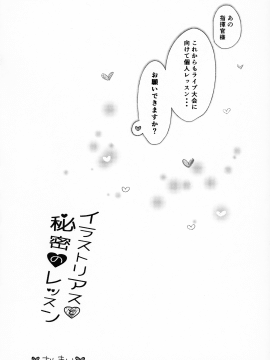 あの
指揮官様
これからもライブ大会に
向けて個人レッスン・・・
お願いできますか?
イラストリアス♥
秘密の
レッスン
♥おしまい♥